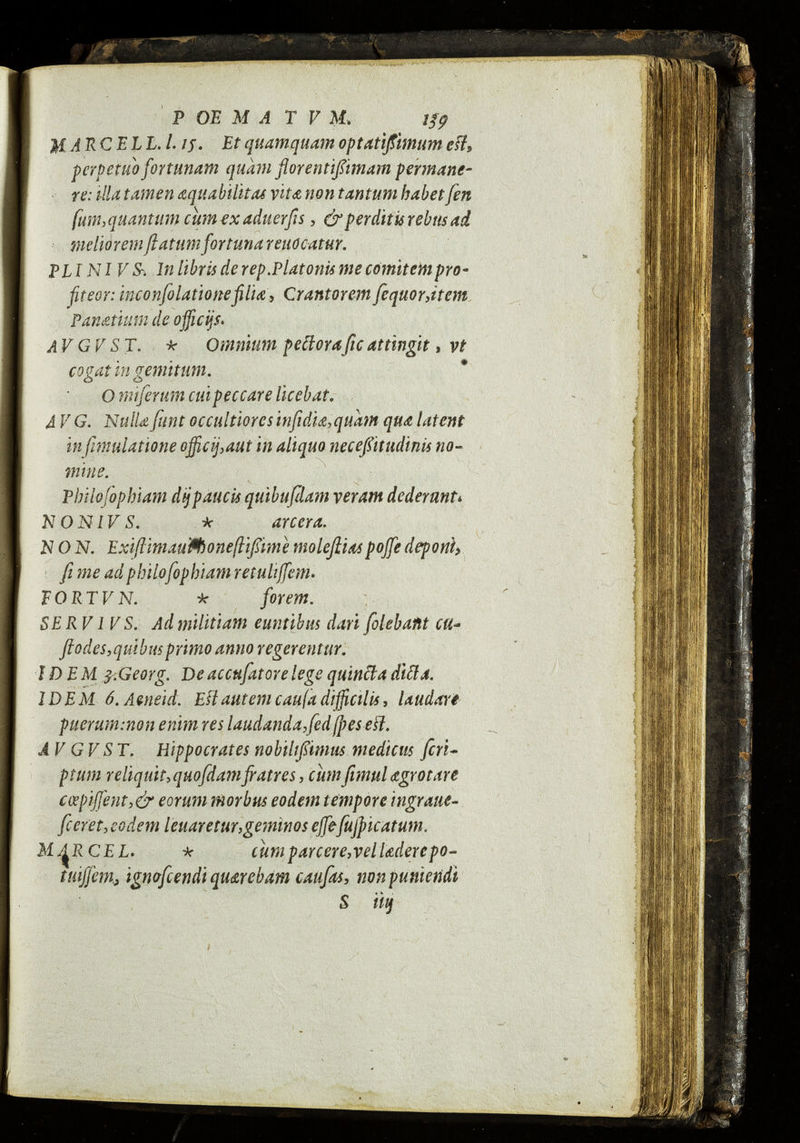 P OE M A T V M. 139
MARCELL. l. 15. Et quamquam optatißimum est,
perpetuò fortunam quàm florentißimam permane-
re: illa tamen æquabilitas vitæ non tantum habet sen
sum, quantum cùm ex aduersis, & perditis rebus ad
meliorem statum fortuna reuocatur.
PLINIVS. In libris de rep. Platonis me comitem pro-
fiteor: in consolatione filiæ, Crantorem sequor, item
Panætium de officijs.
AVGVST. * Omnium pectora sic attingit, vt
cogat in gemitum. *
O miserum cui peccare licebat.
AVG. Nullæ sunt occultiores insidiæ, quàm quæ latent
in simulatione officij, aut in aliquo neceßitudinis no-
mine.
Philosophiam dij paucis quibusdam veram dederunt.
NONIVS. * arcera.
NON. Existimaui honestißimè molestias posse deponi,
si me ad philosophiam retulissem.
FORTVN. * forem.
SERVIVS. Ad militiam euntibus dari solebant cu-
stodes, quibus primo anno regerentur.
IDEM 3. Georg. De accusatore lege quincta dicta.
IDEM 6. Aeneid. Est autem causa difficilis, laudare
puerum: non enim res laudanda, sed spes est.
AVGVST. Hippocrates nobilißimus medicus scri-
ptum reliquit, quosdam fratres, cùm simul ægrotare
cœpissent, & eorum morbus eodem tempore ingraue-
sceret, eodem leuaretur, geminos esse suspicatum.
MARCEL. * cùm parcere, vel lædere po-
tuissem, ignoscendi quærebam causas, non puniendi
S iiij